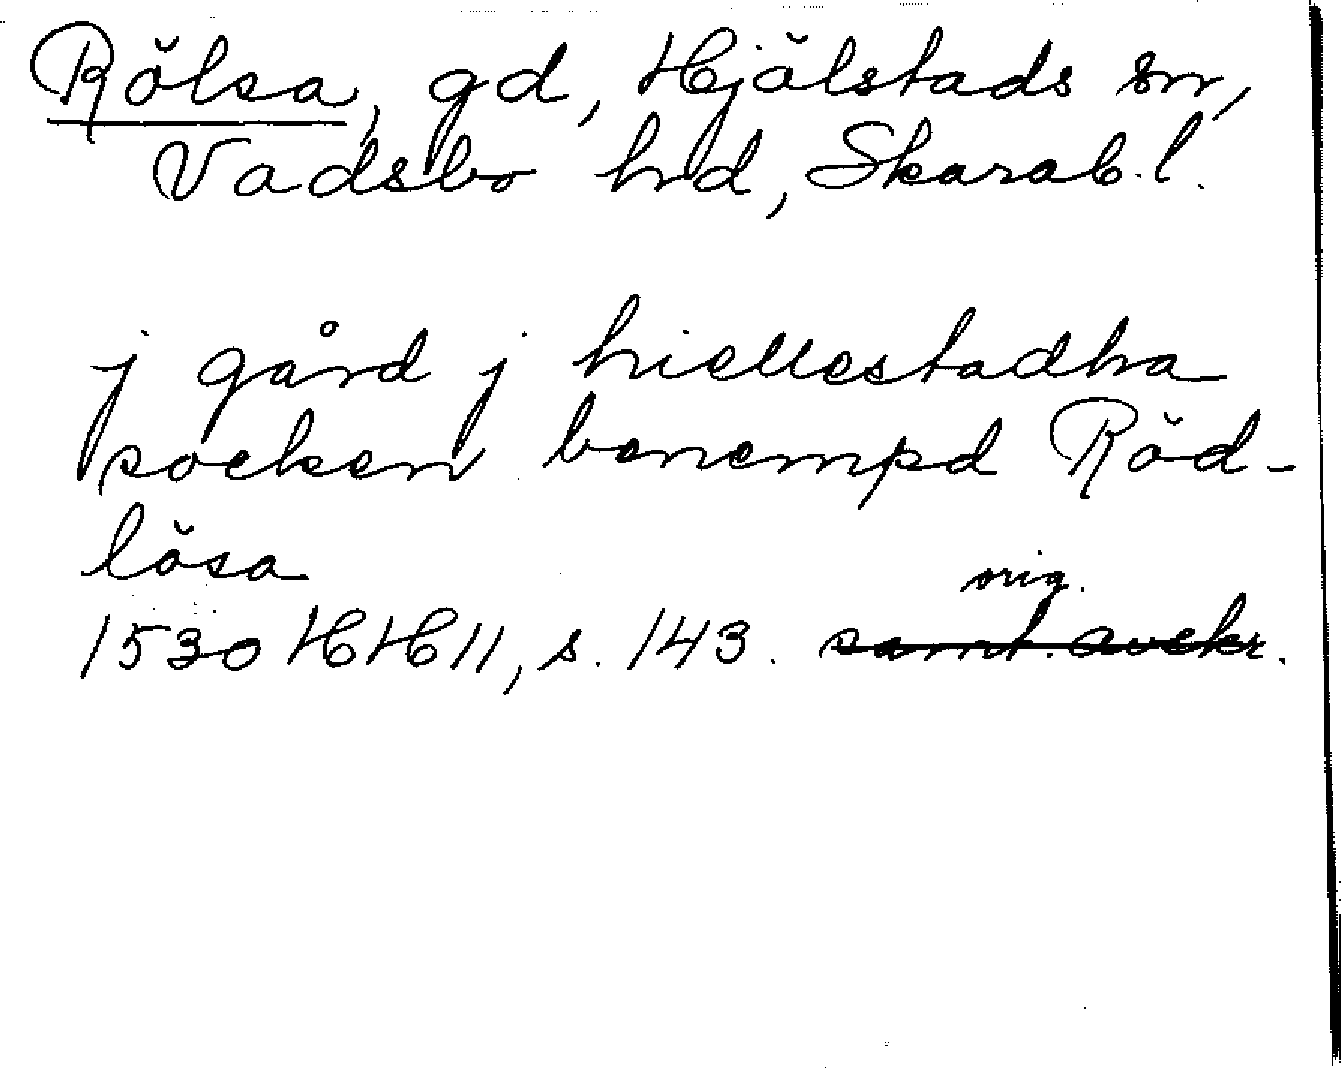 Rölsa, gd, Hjälstads sn,
Vadsbo hd, Skarab. l.
j gård j hiellestadha
socken benempd Röd-
lösa
orig.
1530 HH 11, s. 143. samt. avskr.